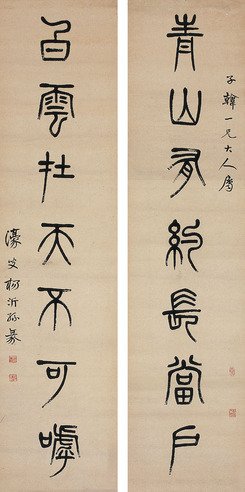 青山有約長當戶
子韓一兄大人屬
白雲在天不可呼
濠叟楊沂孫篆